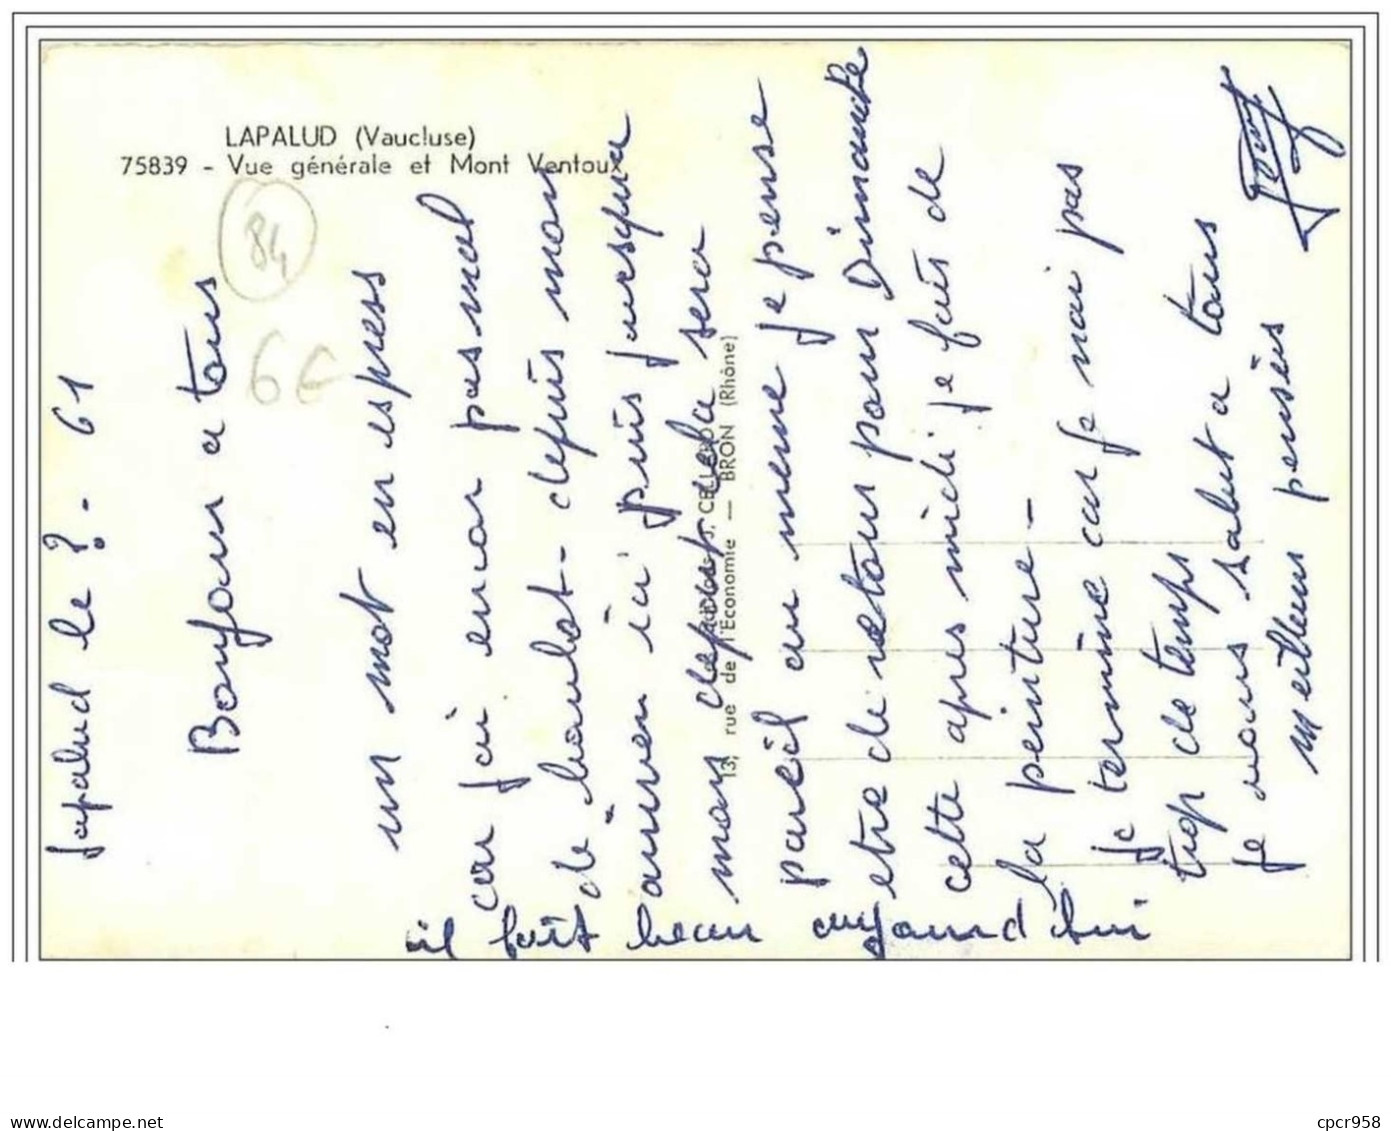 LAPALUD (Vaucluse)
75839 - Vue générale et Mont Ventoux
84
6€
13, rue de l'Economie — BRON (Rhône)
Lapalud le ? - 61
Bonjour a tous
un mot en espress
car jai encor pas mal
de boulot - depuis mon
ariver ici puis jusqua
mon depart cela sera
pareil au meme je pense
etre de retour pour Dimanche
cette apres midi je fais de
la peinture -
je termine car je nai pas
trop de temps
je vous salut a tous
meilleur pensées
il fait beau aujourdhui
delcampe.net
cpcr958